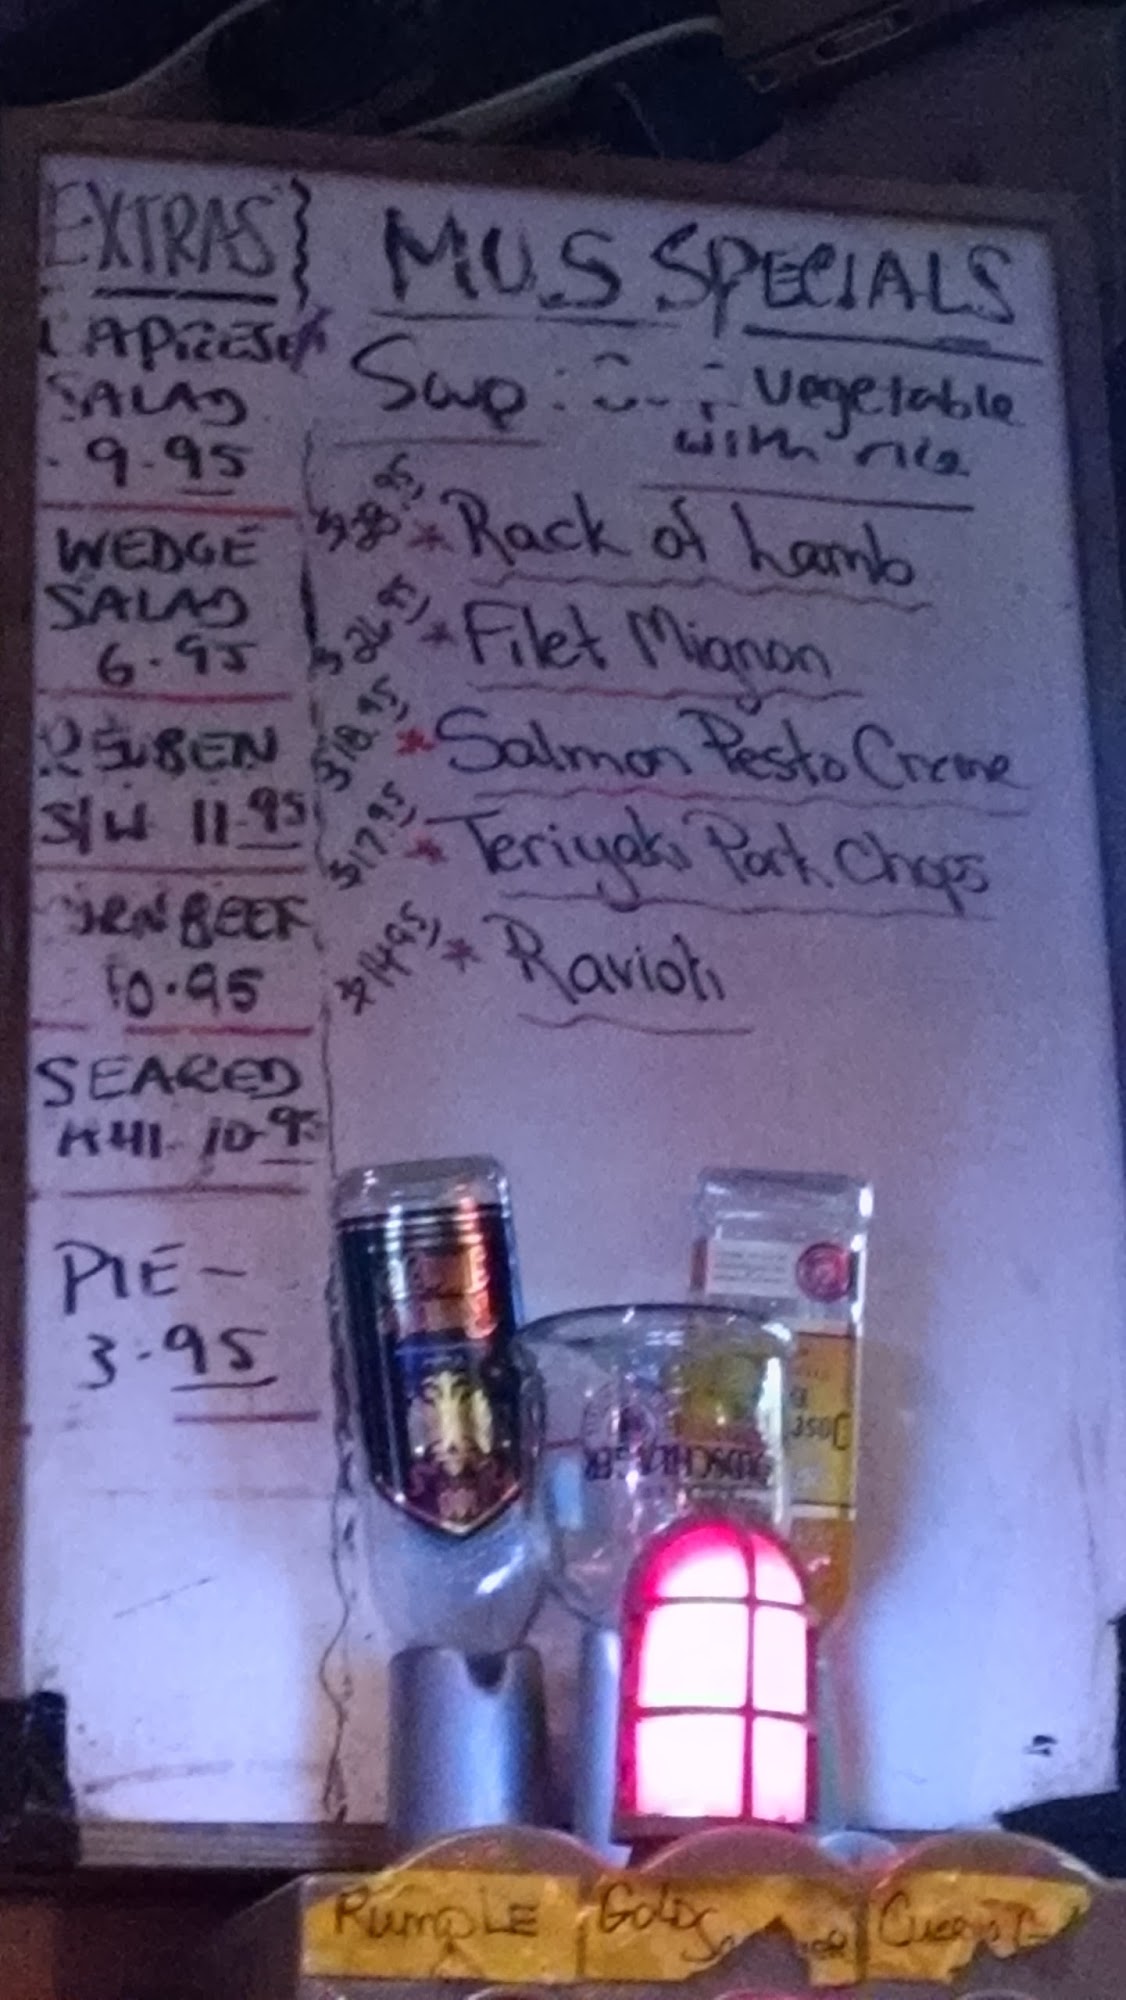 EXTRAS}
CAPREESE
SALAD
9.95
WEDGE
SALAD
6.95
REUBEN
S/W 11.95
CORN BEEF
10.95
SEARED
AHI 10.95
PIE -
3.95
MUS SPECIALS
Soup : Vegetable
with rice
* Rack of Lamb
$26.95 * Filet Mignon
$18.95 * Salmon Pesto Creme
$17.95 * Teriyaki Pork Chops
$14.95 * Ravioli
RUMPLE
GOLDS
CUERVO